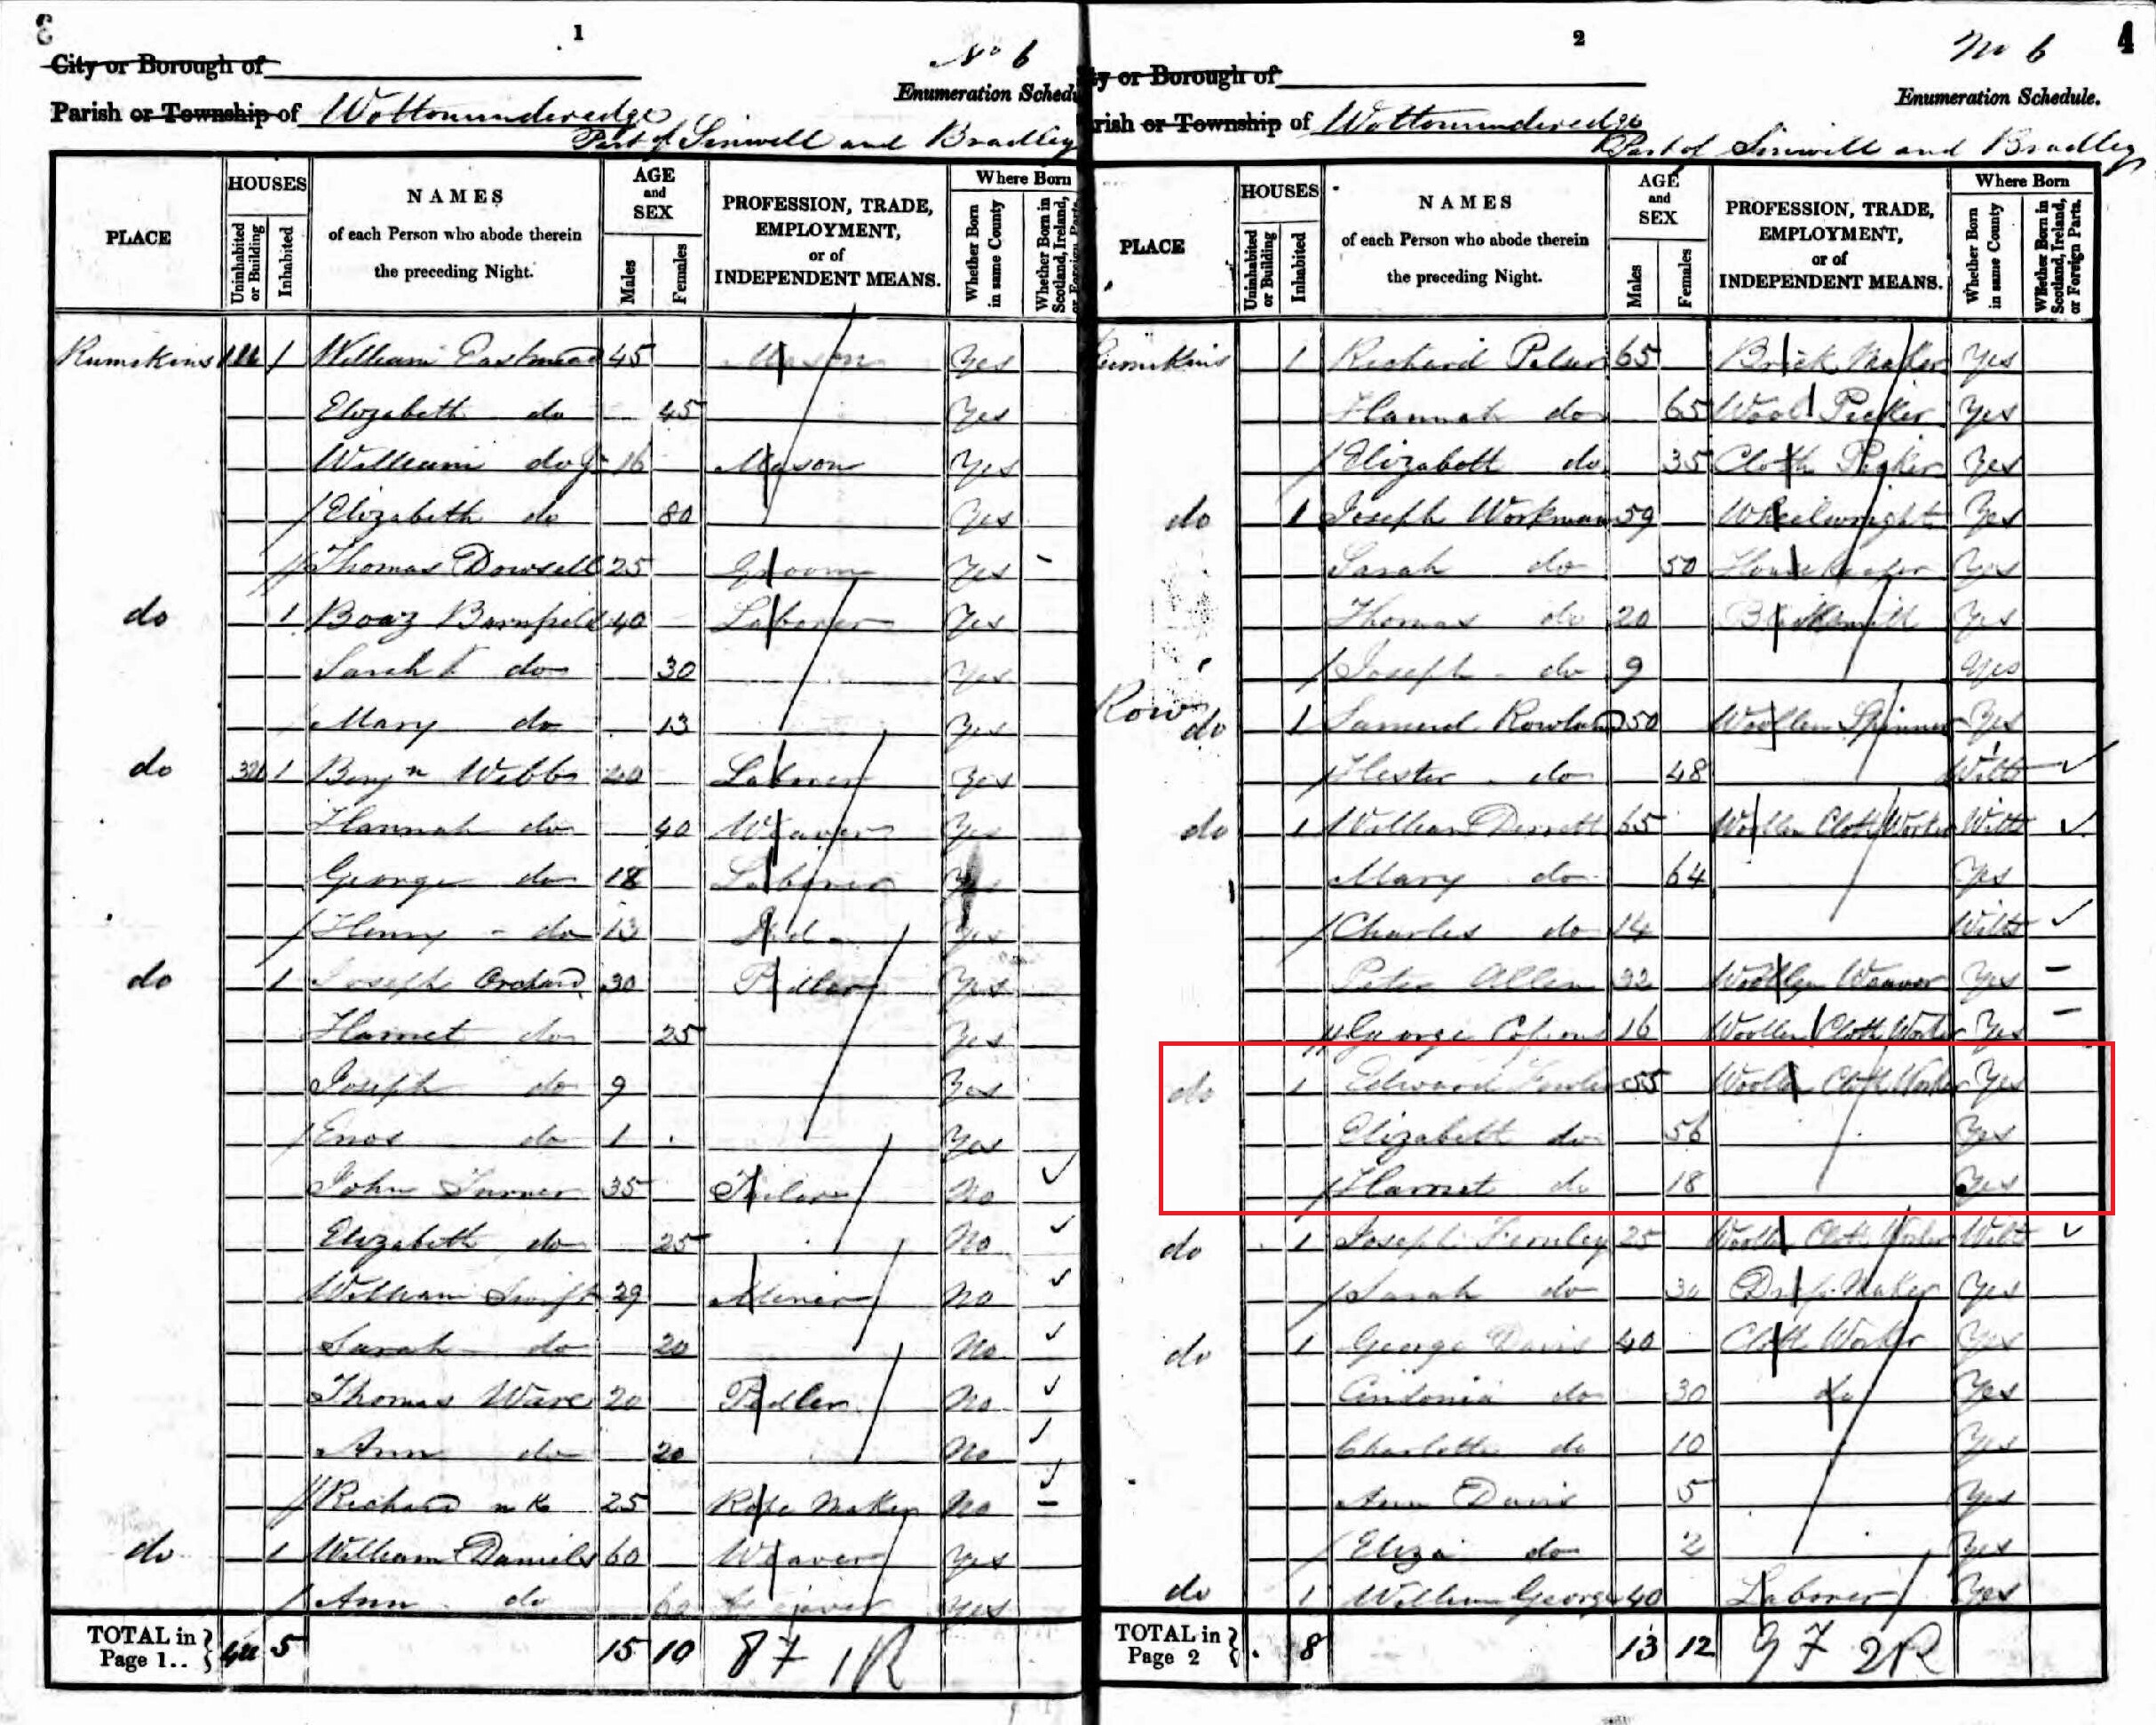 3
1
City or Borough of
No 6
Enumeration Schedu
Parish or Township of Wottonunderedge
Part of Sinwell and Bradley
PLACE
HOUSES
Uninhabited or Building
Inhabited
NAMES
of each Person who abode therein
the preceding Night.
AGE
and
SEX
Males
Females
PROFESSION, TRADE,
EMPLOYMENT,
or of
INDEPENDENT MEANS.
Where Born
Whether Born in same County
Whether Born in Scotland, Ireland, or Foreign Parts.
1 William Eastmead 45 Mason Yes
Elizabeth do 45 Yes
William do 16 Mason Yes
Elizabeth do 80 Yes
Thomas Dowsell 25 Groom Yes
do 1 Boaz Barnfield 40 Laborer Yes
Sarah do 30 Yes
Mary do 13 Yes
do 1 Benjn Webb 40 Laborer Yes
Hannah do 40 Weaver Yes
George do 18 Laborer Yes
Henry do 13 Yes
do 1 Joseph Orchard 30 Pedler Yes
Harriet do 25 Yes
Joseph do 9 Yes
Enos do 1 Yes
John Turner 35 No
Elizabeth do 25 No
William Swift 29 Miner No
Sarah do 20 No
Thomas Ware 20 Pedler No
Ann do 20 No
Richard n k 25 Rope Maker No
do 1 William Daniels 60 Weaver Yes
Ann do Yes
TOTAL in Page 1.. 5 15 10 87 1R
2
No 6
4
ty or Borough of
Enumeration Schedule.
rish or Township of Wottonunderedge
Part of Sinwell and Bradley
PLACE
HOUSES
Uninhabited or Building
Inhabited
NAMES
of each Person who abode therein
the preceding Night.
AGE
and
SEX
Males
Females
PROFESSION, TRADE,
EMPLOYMENT,
or of
INDEPENDENT MEANS.
Where Born
Whether Born in same County
Whether Born in Scotland, Ireland, or Foreign Parts.
1 Richard 65 Brick Maker Yes
Hannah do 65 Wool Picker Yes
Elizabeth do 35 Cloth Picker Yes
do 1 Joseph Workman 59 Wheelwright Yes
Sarah do 50 Yes
Thomas do 20 Blacksmith Yes
Joseph do 9 Yes
Row do 1 Samuel Rowland 50 Woollen Spinner Yes
Hester do 48 Wilts
do 1 William Derrett 65 Woollen Cloth Worker Wilts
Mary do 64 Yes
Charles do 14 Wilts
Peter Allen 32 Woollen Weaver Yes
George 16 Woollen Cloth Worker Yes
do 1 Edward Fowler 55 Woollen Cloth Worker Yes
Elizabeth do 56 Yes
Harriet do 18 Yes
do 1 Joseph Fernley 25 Woollen Cloth Worker Wilts
Sarah do 30 Maker Yes
do 1 George Davis 40 Cloth Worker Yes
do 30 do Yes
Charlotte do 10 Yes
Ann Davis 5 Yes
Eliza do 2 Yes
do 1 William George 40 Laborer Yes
TOTAL in Page 2 8 13 12 97 2R